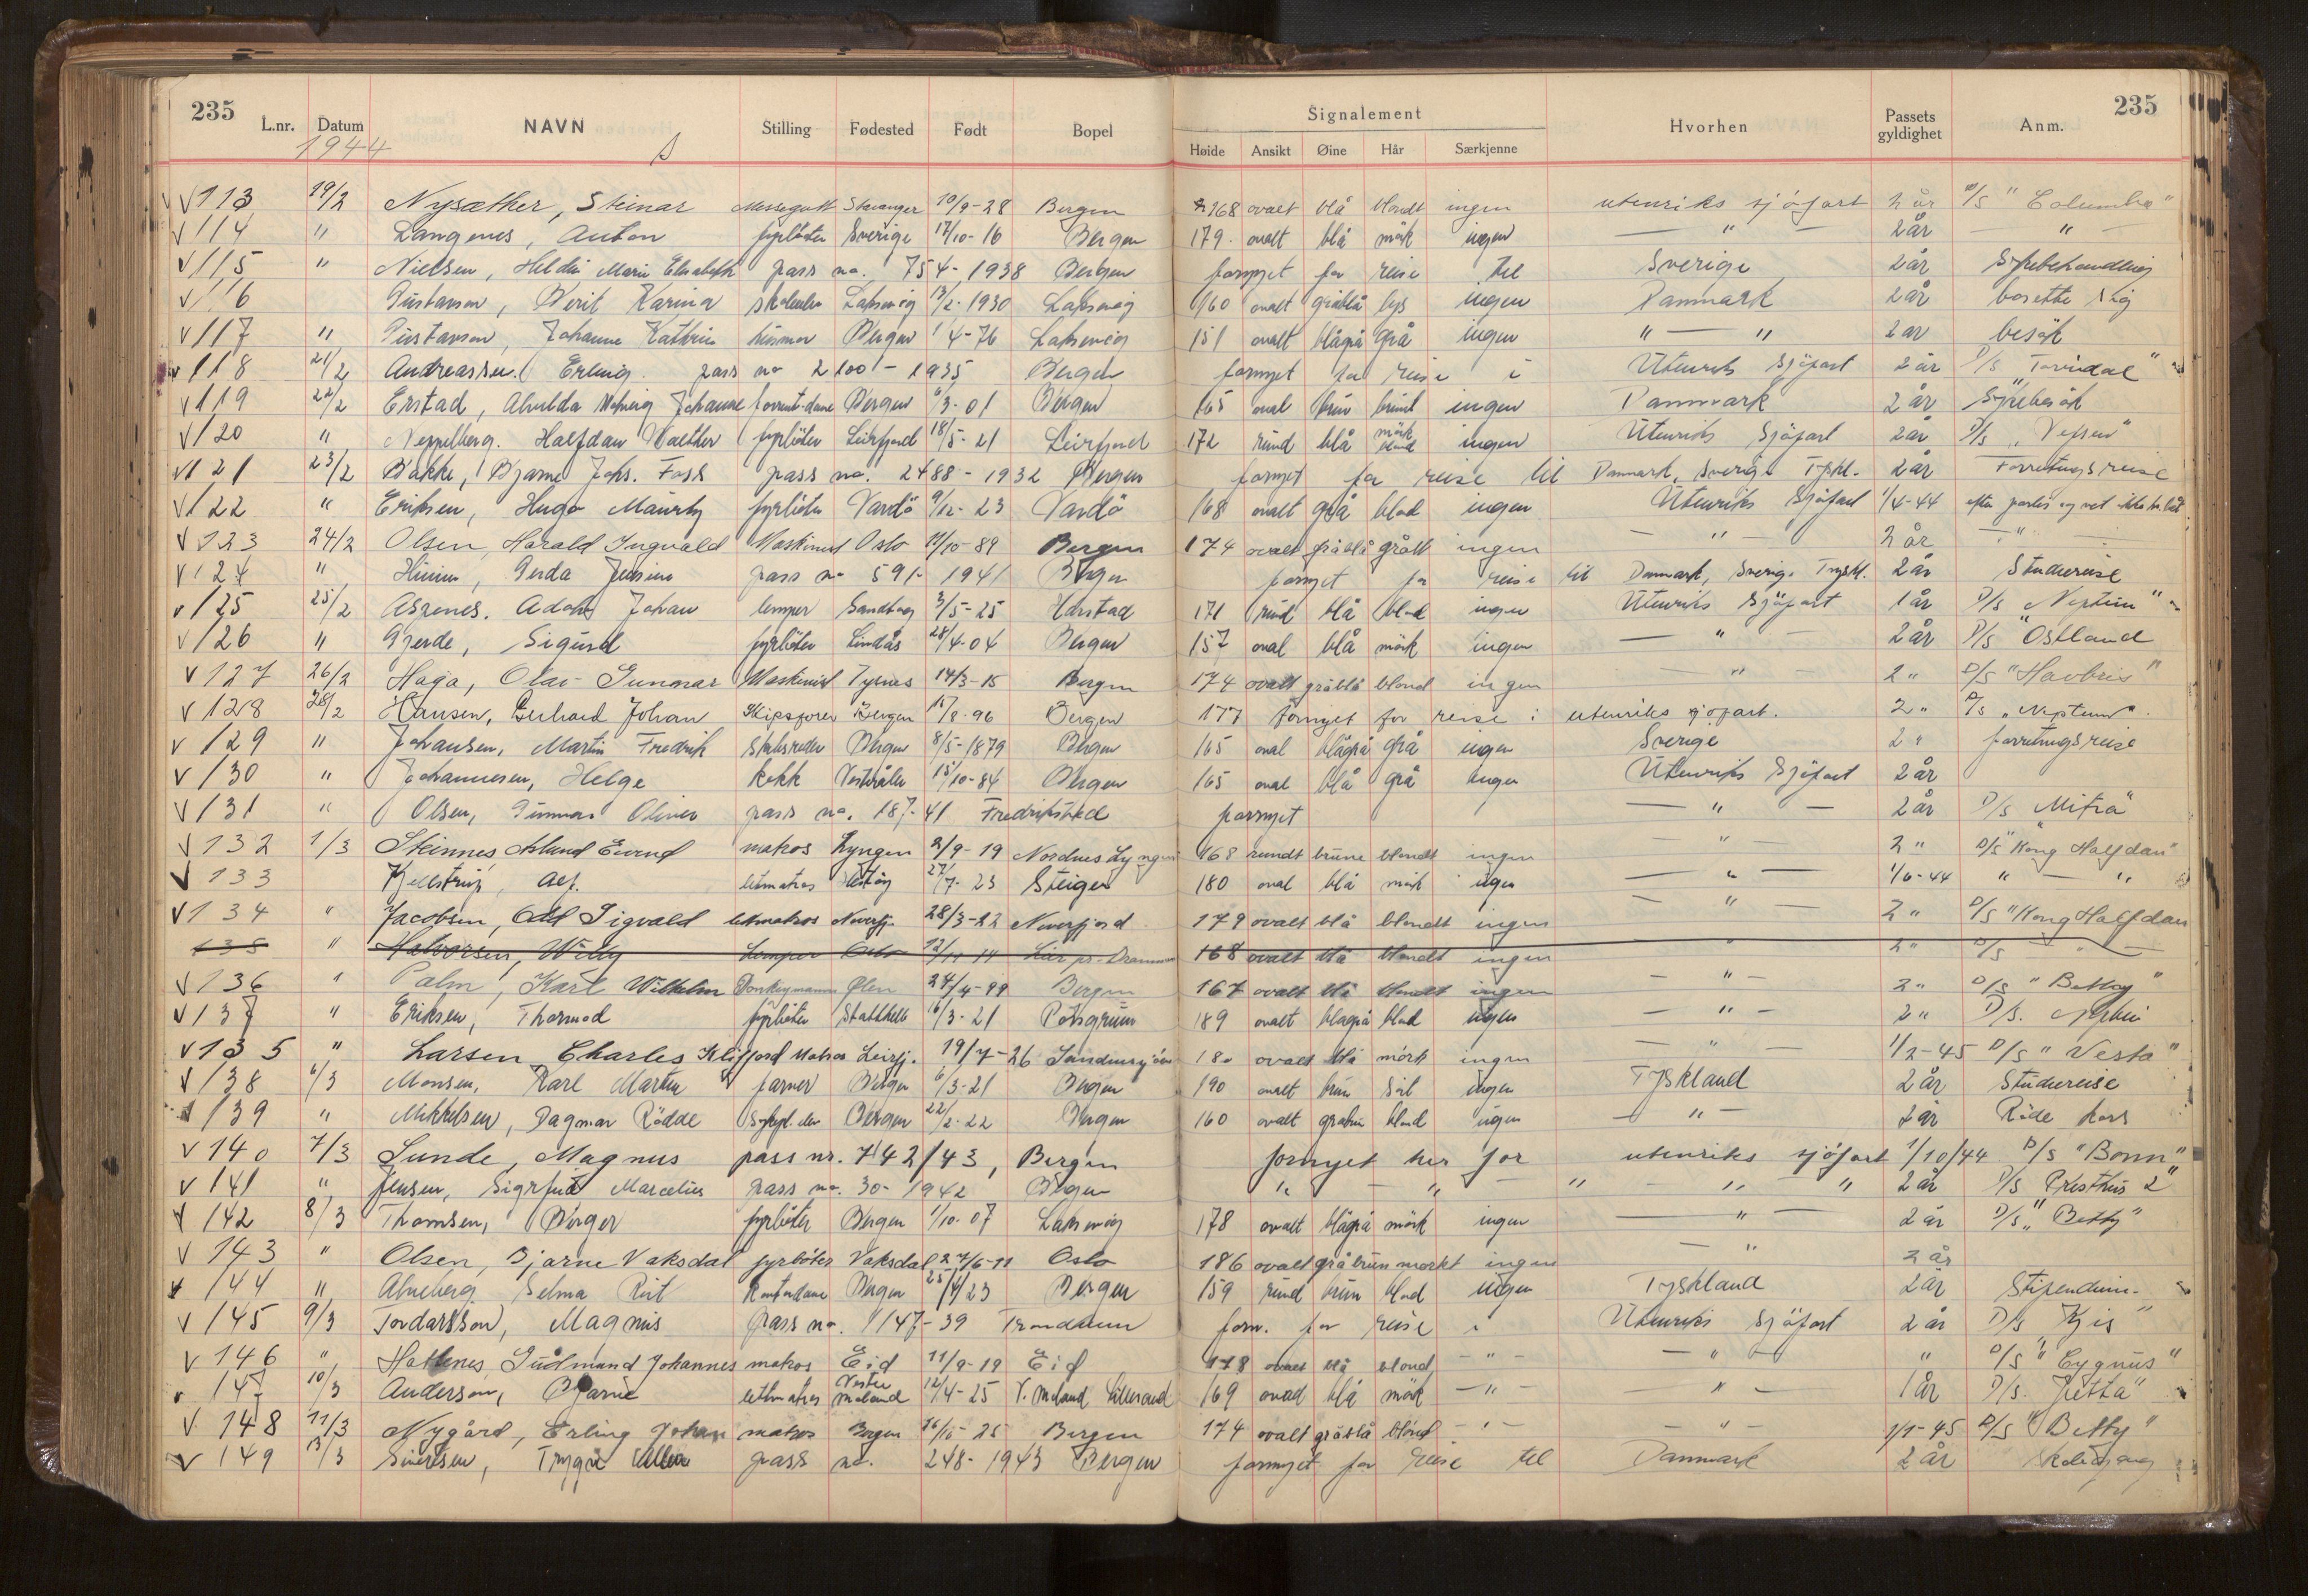 235 235
Signalement
L.nr. Datum NAVN Stilling Fødested Født Bopel Høide Ansikt Øine Hår Særkjenne Hvorhen Passets gyldighet Anm.
1944
V 113 19/2 Nysæther, Steinar Messegutt Stavanger 10/9-28 Bergen 168 ovalt blå blondt ingen utenriks sjöfart 2 år D/S "Columba"
V 114 " Langenes, Anton fyrböter Sverige 17/10-16 Bergen 179 ovalt blå mörk ingen — " — 2 år — " —
V 115 " Nielsen, Marie Elisabeth pass no. 754-1938 Bergen fornyet for reise til Sverige 2 år
V 116 Gustavson, Berit Karina Laksevåg 13/2-1930 Laksevåg 160 ovalt gråblå lys ingen Danmark 2 år bosette sig
V 117 " Gustavson, Johanne Kathrine husmor Bergen 1/4-76 Laksevåg 151 ovalt blågrå grå ingen " — " 2 år besök
V 118 21/2 Andreassen, Erling pass no 2100-1935 Bergen fornyet for reise i Utenriks Sjöfart 2 år D/S "Torindal"
V 119 22/2 Erstad, Johanne Bergen 6/3-01 Bergen 165 oval brun brunt ingen Danmark 2 år
V 120 " Neppelberg, Halfdan Walther fyrböter Leirfjord 18/5-21 Leirfjord 172 rund blå mörk blond ingen Utenriks Sjöfart 2 år D/S "Vefsen"
V 121 23/2 Bakke, Bjarne Johs. Foss pass no. 2488-1932 Bergen fornyet for reise til Danmark, Sverige Tyskl. 2 år Forretningsreise
V 122 " Eriksen, Hugo Mauritz fyrböter Vardö 9/12-23 Vardö 168 ovalt grå blond ingen Utenriks Sjöfart 1/4-44
V 123 24/2 Olsen, Harald Ingvald Maskinist Oslo 11/10-89 Bergen 174 ovalt gråblå grått ingen — " — 2 år — " —
V 124 " Gerda pass no 591-1941 Bergen fornyet for reise til Danmark, Sverige Tyskl. 2 år Studiereise
V 125 25/2 Aspenes, Adolf Johan lemper Sandtorg 3/5-25 Harstad 171 rund blå blond ingen Utenriks Sjöfart 1 år D/S "Neptun"
V 126 " Gjerde, Sigurd fyrböter Lindås 28/4-04 Bergen 157 oval blå mörk ingen — " — 2 år D/S "Östland
V 127 26/2 Haga, Olav Gunnar Maskinist Tysnes 14/3-15 Bergen 174 ovalt gråblå blond ingen — " — 2 " D/S "Havbris"
V 128 28/2 Hansen, Gerhard Johan Skipsfører Bergen 15/8-96 Bergen 177 fornyet for reise i utenriks sjöfart. 2 " D/S "Neptun"
V 129 " Johansen, Martin Fredrik Skibsreder Bergen 8/5-1879 Bergen 165 oval blågrå grå ingen Sverige 2 " forretningsreise
V 130 " Johannesen, Helge kokk Vesterålen 15/10-84 Bergen 165 oval blå grå ingen Utenriks Sjöfart 2 år
V 131 " Olsen, Gunnar Oliver pass no. 187-41 Fredrikstad fornyet — " — 2 år D/S "Mitra"
V 132 1/3 Steinnes, Eivind matros Lyngen 2/9-19 Nordnes Lyngen 168 rundt brune blondt ingen — " — 2 " D/S "Kong Halfdan"
V 133 Alf. letmatros 27/7-23 Steigen 180 oval blå mörk ingen — " — 1/6-44 " — "
V 134 " Jacobsen, Odd Sigvald letmatros Neverfj. 28/3-22 Neverfjord 179 ovalt blå blondt ingen — " — 2 " D/S "Kong Halfdan
135 " Halvorsen, Willy Lemper Oslo 12/11-14 Lier pr. Drammen 168 ovalt blå blondt ingen " 2 " D/S — " —
V 136 " Palm, Karl Wilhelm Donkeymann 24/4-99 Bergen 167 ovalt blå blondt ingen — " — 2 " D/S "Betty"
V 137 " Eriksen, Thormod fyrböter Stathelle 16/3-21 Porsgrunn 189 ovalt blågrå blond ingen — " — 2 " D/S.
V 135 " Larsen, Charles Klifford Matros Leirfj. 19/7-26 180 ovalt blå mörk ingen — " — 1/2-45 D/S "Vesta"
V 138 6/3 Monsen, Karl Martin farver Bergen 6/3-21 Bergen 190 ovalt brun ingen Tyskland 2 år Studiereise
V 139 " Mikkelsen, Dagmar Rödde Bergen 22/2-22 Bergen 160 ovalt blond ingen — " — 2 år Röde kors
V 140 7/3 Lunde, Magnus pass nr. 742/43, Bergen fornyet her for utenriks sjöfart 1/10/44 D/S "Bonn"
V 141 " Jensen, Sigfrid Marcelius pass no. 30-1942 Bergen " — " — " — " — " 2 år D/S
V 142 8/3 Thomsen, Birger fyrböter Bergen 1/10-07 Laksevåg 178 ovalt blågrå mörk ingen — " — 2 år D/S "Betty"
V 143 " Olsen, Bjarne Vaksdal fyrböter Vaksdal 27/6-11 Oslo 186 ovalt gråbrun mørkt ingen — " — 2 år
V 144 " Selma Rut Kontordame Bergen 25/4/23 Bergen 159 rund brun blond ingen Tyskland 2 år Stipendium
V 145 9/3 Tordarsson, Magnus pass no. 1147-39 Trondheim forn. for reise i Utenriks Sjöfart 2 år D/S
V 146 " Gudmund Johannes matros Eid 11/9-19 Eid 178 ovalt blå blond — " — — " — " D/S "Cygnus"
V 147 10/3 Anderson, Bjarne lettmatros Vestre Moland 12/4-25 V. Moland Lillesand 169 ovad blå mörk — " — — " — 1 år D/S. "Jetta"
V 148 11/3 Nygård, Erling Johan matros Bergen 16/10-25 Bergen 174 ovalt gråblå blond — " — — " — 1/1-45 D/S "Betty"
V 149 13/3 Sivertsen, Trygve pass no. 248-1943 Bergen fornyet for reise til Danmark 2 år